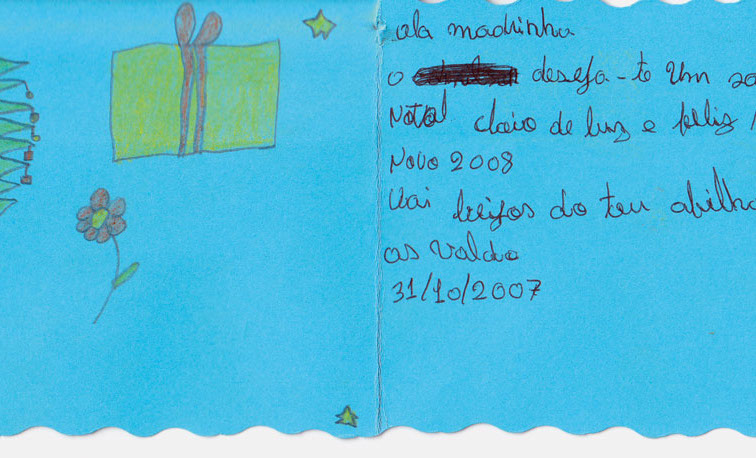 ola madrinha
o desefa-te Um
Natal claio de luz e feliz
Novo 2008
Vai beijos do teu
osvaldo
31/10/2007